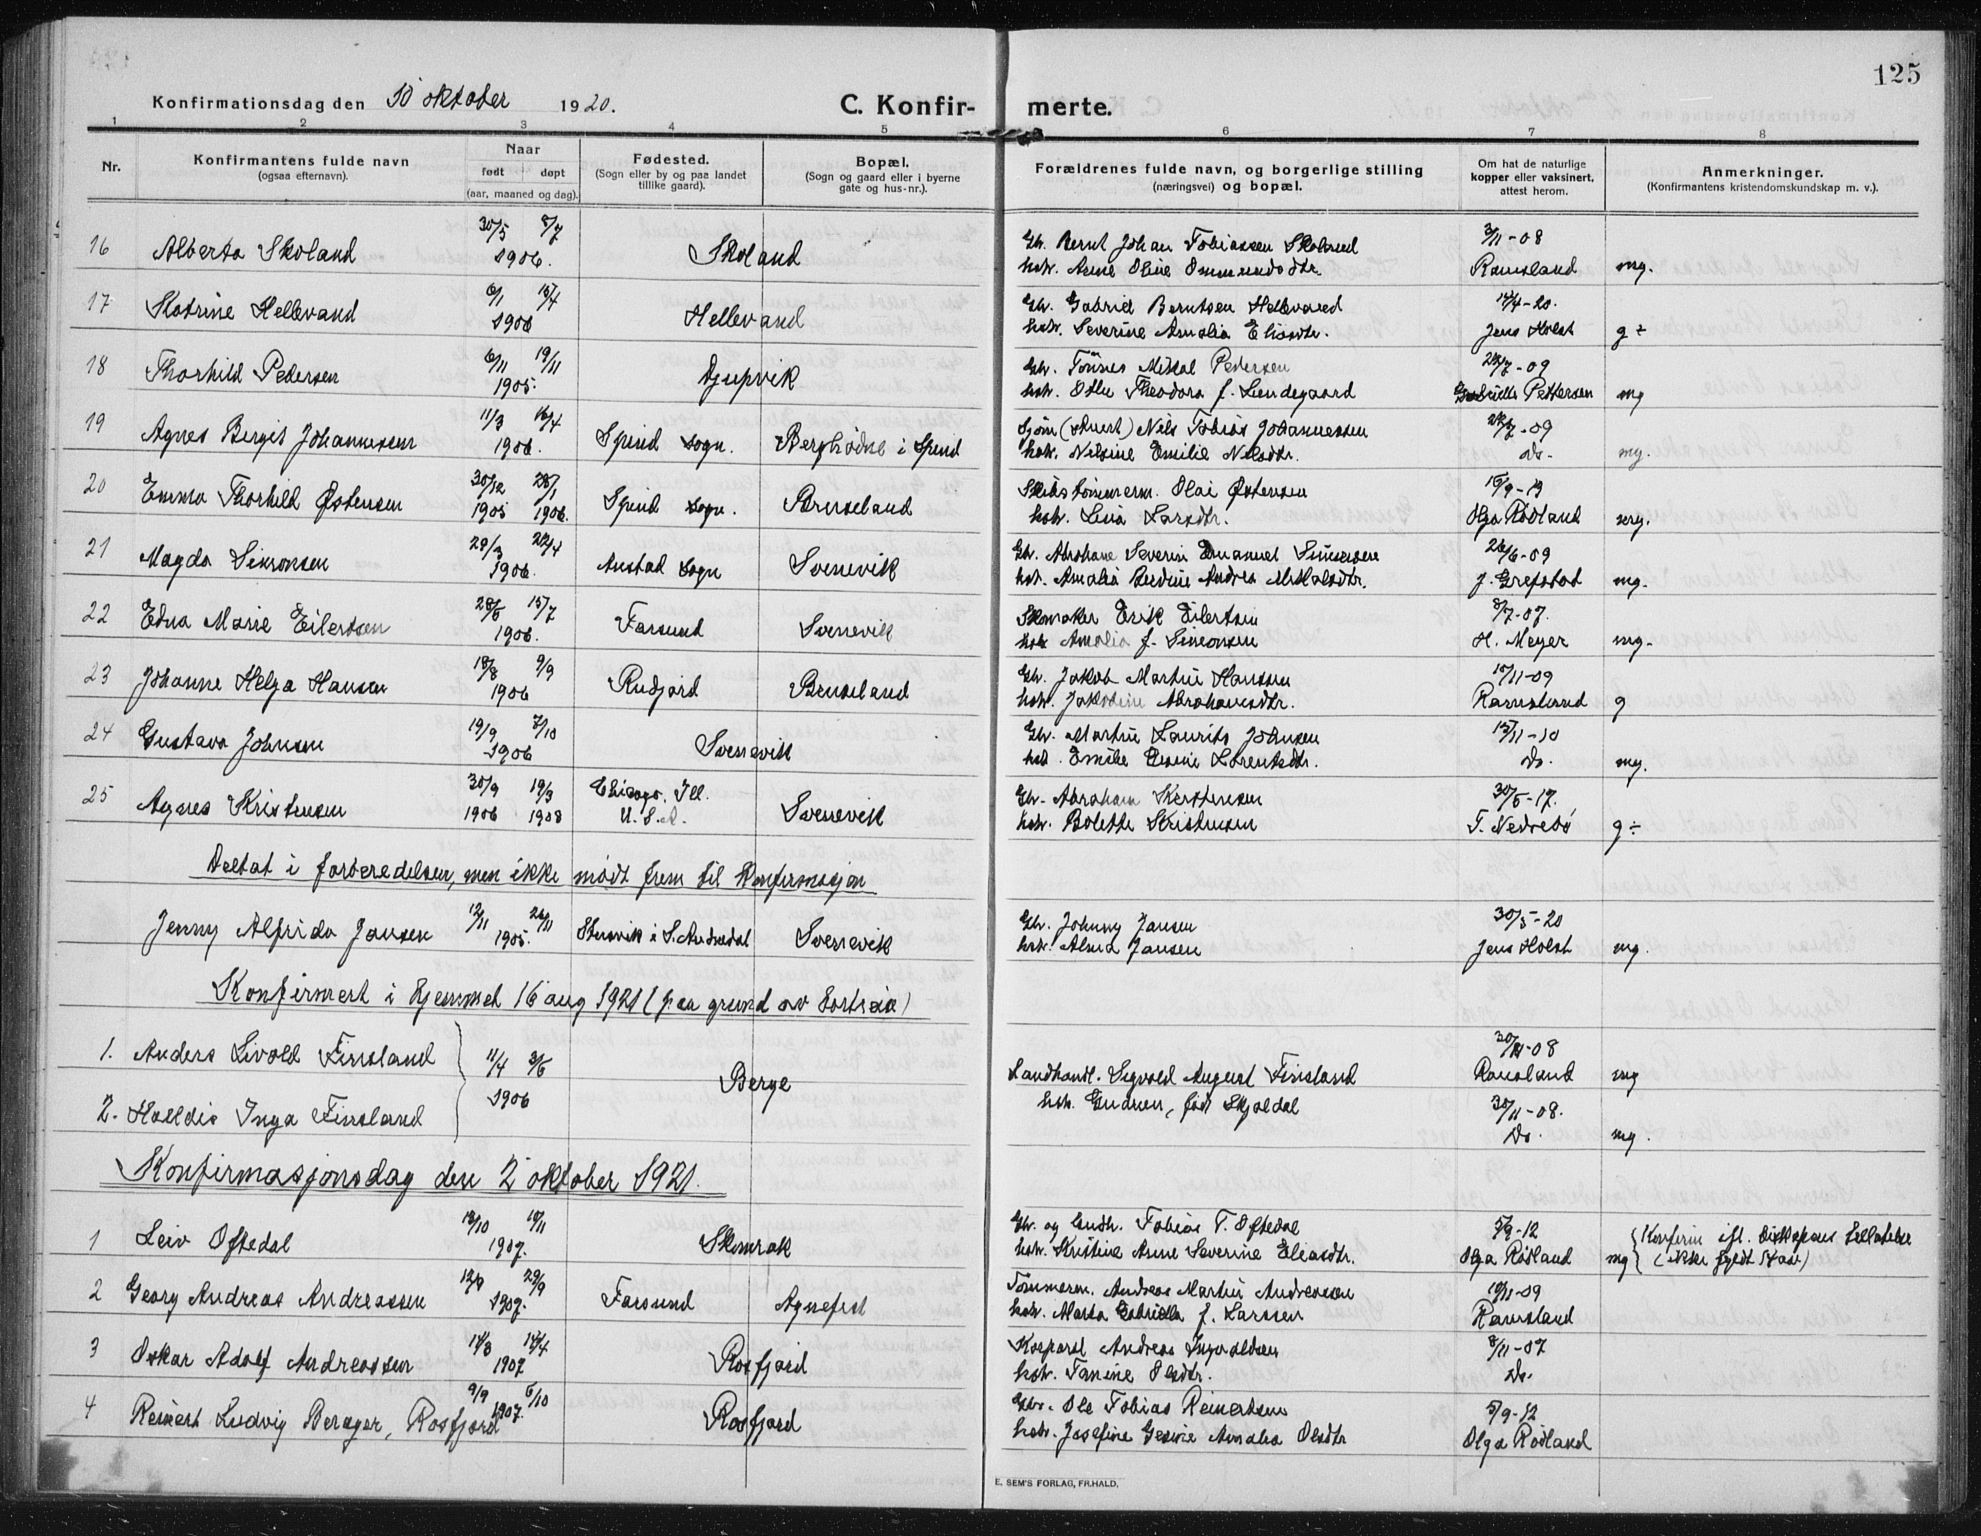 125
Konfirmationsdag den 10 oktober 1920.
C. Konfirmerte.
1 2 3 4 5 6 7 8
Nr.
Konfirmantens fulde navn
(ogsaa efternavn).
Naar
født døpt
(aar, maaned og dag).
Fødested.
(Sogn eller by og paa landet
tillike gaard).
Bopæl.
(Sogn og gaard eller i byerne
gate og hus-nr.).
Forældrenes fulde navn, og borgerlige stilling
(næringsvei) og bopæl.
Om hat de naturlige
kopper eller vaksinert,
attest herom.
Anmerkninger.
(Konfirmantens kristendomskundskap m. v.).
30/5 8/7 Gbr. Bernt Johan Tobiassen Skoland 3/11-08
16 Alberta Skoland 1906. Skoland hstr. Anne Oline Ommundsdtr. Ramsland mg.
6/1 15/4 Gbr. Gabriel Berntsen Hellevand 14/4-20.
17 Katrine Hellevand 1906 Hellevand hstr. Severine Amalia Eliasdtr. Jens Holst g÷
6/11 19/11 Gbr. Tønnes Mikal Pedersen 28/7-09
18 Thorhild Pedersen 1905. Djupvik hstr. Otlu Theodora f. Lundegaard Gabrielle Pettersen mg
11/3 16/4 Sjøm (Skuert) Nils Tobias Johannessen 28/7-09
19 Agnes Bergit Johannessen 1906. Spind sogn. Berghødne i Spind hstr. Nilsine Emilie Nilsdtr. Do. mg.
30/12 28/1 Skibstømmerm. Olai Østensen 16/9-19
20 Emma Thorhild Østensen 1905 1906. Spind sogn. Bruseland hstr. Lina Larsdtr. Olga Rødland mg.
29/3 22/4 Gbr. Abrahan Severin Emanuel Simonsen 26/6-09
21 Magda Simonsen 1906. Austad sogn Svenevik hstr. Amalia Andrea Mikalsdtr. J. Grefstad mg.
15/7 Skomaker Erik Eilertsen 8/7-07.
22 Edna Marie Eilertsen 1906. Farsund Svenevik hstr Amalia f. Simonsen H. Meyer mg.
18/8 9/9 Gbr. Jakob Martin Hanssen 15/11-09
23 Johanne Helga Hansen 1906 Rudjord Bruseland hstr. Jakobine Abrahamsdtr. Ramsland g
19/9 7/10 Gbr. Martin Laurits Johnsen 15/11-10
24 Gustava Johnsen 1906 Svenevik hstr. Emilie Lorentsdtr. Do. mg.
30/9 19/3 Chicago. Ill. Gbr. Abraham Kristensen 30/5-17.
25 Agnes Kristensen 1906 1908 U.S.A. Svenevik hstr. Bolette Kristensen T. Nedrebø g÷
Deltat i forberedelsen, men ikke mødt frem til Konfirmasjon
12/11 26/11 Gbr. Johnny Jansen 30/5-20
Jenny Alfrida Jansen 1905. Stensvik i S. Audnedal Svenevik hstr. Alma Jansen Jens Holst mg.
Konfirmert i hjemmet 16 aug 1921 (paa grund av bortreise)
1. Anders Sivold Finsland 11/4 3/6 1906 Berge Landhandl. Sigvald August Finsland 30/11-08 Ramsland mg
2. Halldis Inga Finsland hstr. Gudrun, født Skjoldal 30/11-08. Do. mg.
Konfirmasjonsdag den 2 oktober 1921.
18/10 10/11 Gbr. og landh. Tobias T. Oftedal 5/9-12 Konfirm ifl. biskopens tillatelse
1 Leiv Oftedal 1907. Skomrak hstr. Kristine Anne Severine Eliasdtr. Olga Rødland mg (ikke fyldt 14 aar)
12/9 29/9 Tømmerm. Andreas Martin Andreassen 19/11-09
2 Georg Andreas Andreassen 1907. Farsund Agnefest hstr. Marta Gabriella f. Larssen Ramsland
14/3 14/4 Andreas Ingvaldsen 8/11-07
3 Oskar Adolf Andreassen 1907 Rosfjord hstr. Tanine Olsdtr. Do.
9/9 6/10 Gbr. Ole Tobias Reinertsen 5/9-12
4 Reinert Ludvig Berager, Rosfjord 1907. Rosfjord hstr. Josefine Gesine Amalia Olsdtr Olga Rødland
E. SEM'S FORLAG, FR.HALD.